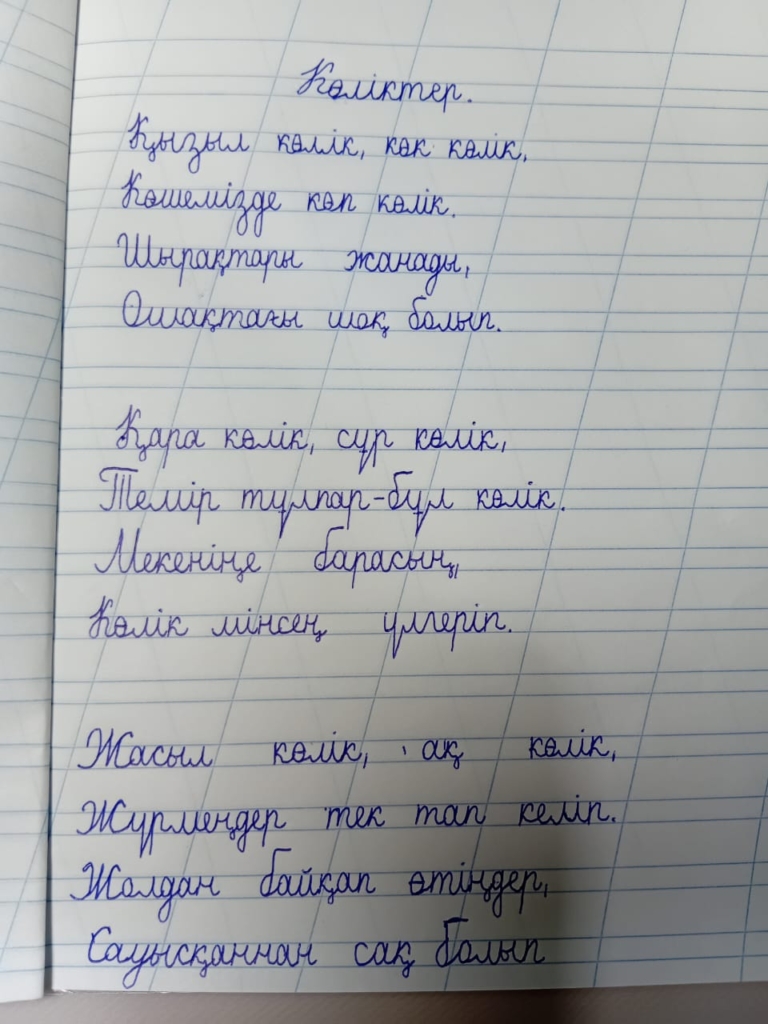 Көліктер.
Қызыл көлік, көк көлік,
Көшемізде көп көлік.
Шырақтары жанады,
Ошақтағы шоқ болып.
Қара көлік, сұр көлік,
Темір тұлпар-бұл көлік.
Мекеніңе барасың,
Көлік мінсең үлгеріп.
Жасыл көлік, ақ көлік,
Жүрмеңдер тек тап келіп.
Жолдан байқап өтіңдер,
Сауысқаннан сақ болып